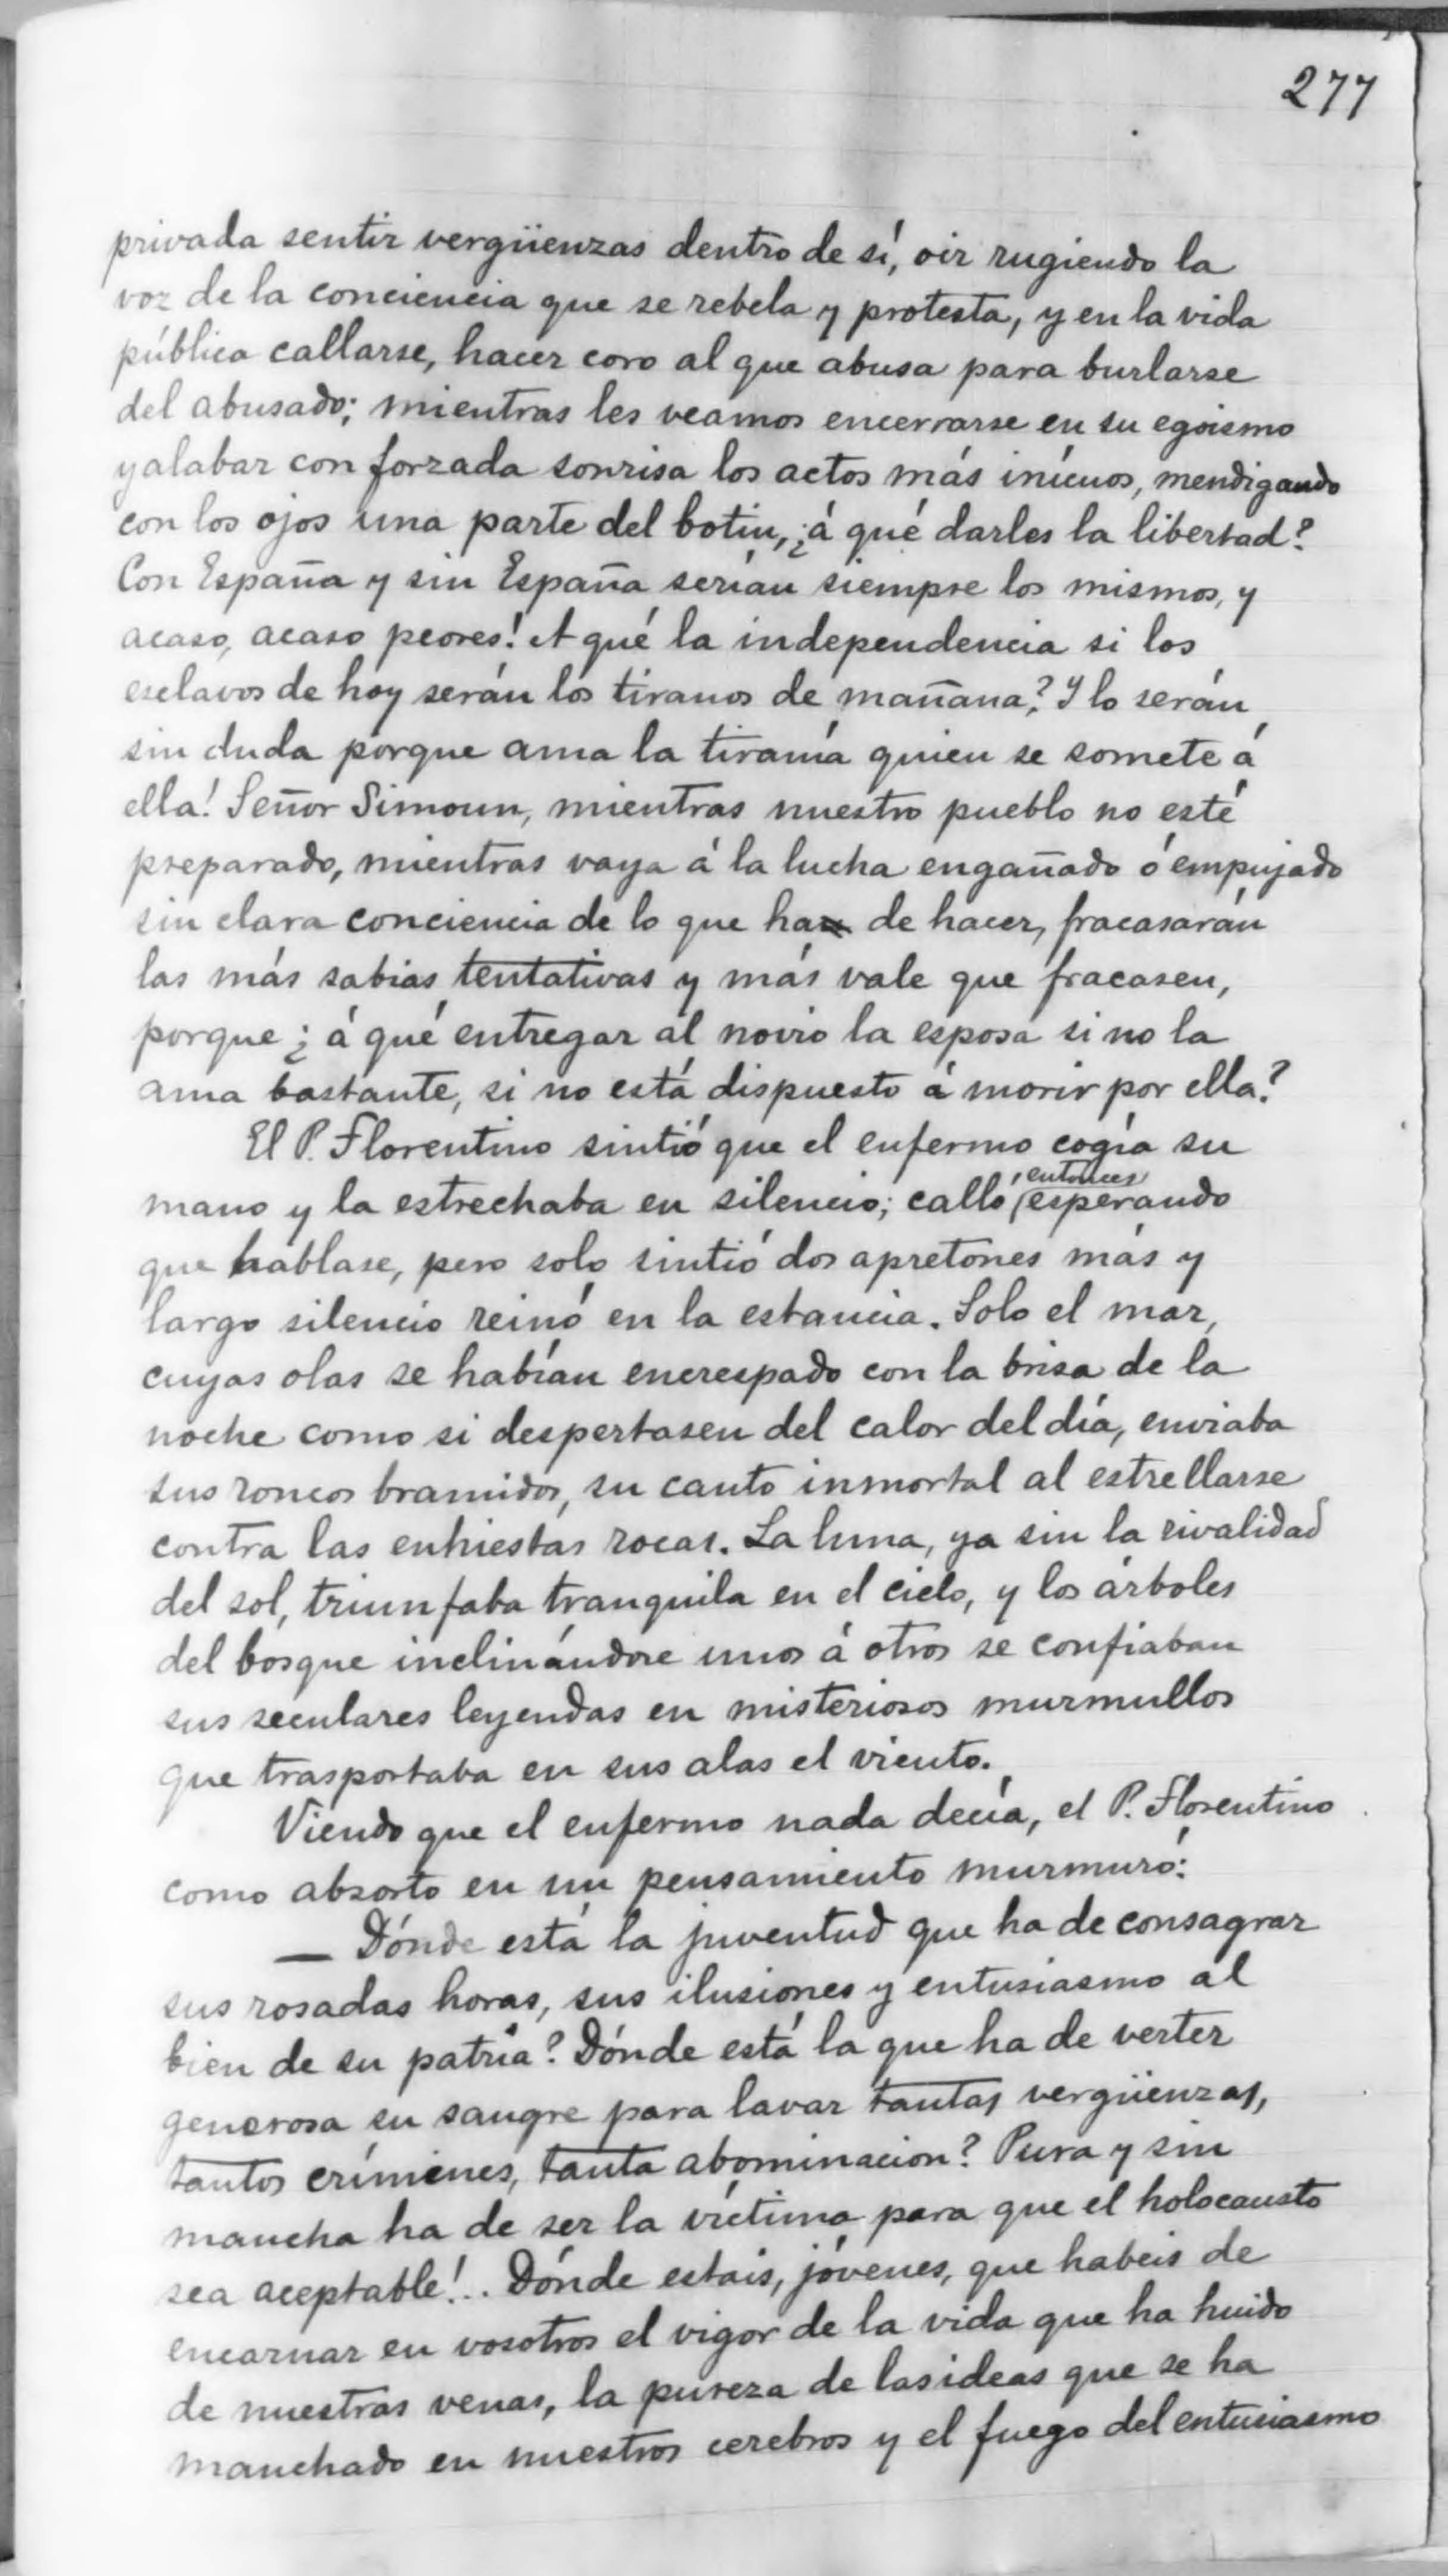 277
privada sentir vergüenzas dentro de sí, oir rugiendo la
voz de la conciencia que se rebela y protesta, y en la vida
pública callarse, hacer coro al que abusa para burlarse
del abusado; mientras les veamos encerrarse en su egoismo
y alabar con forzada sonrisa los actos más inícuos, mendigando
con los ojos una parte del botin, ¿á qué darles la libertad?
Con España y sin España serían siempre los mismos, y
acaso, acaso peores! A qué la independencia si los
esclavos de hoy serán los tiranos de mañana? Y lo serán
sin duda porque ama la tiranía quien se somete á
ella! Señor Simoun, mientras nuestro pueblo no esté
preparado, mientras vaya á la lucha engañado ó empujado
sin clara conciencia de lo que ha de hacer, fracasarán
las más sabias tentativas y más vale que fracasen,
porque ¿á qué entregar al novio la esposa si no la
ama bastante, si no está dispuesto á morir por ella?
El P. Florentino sintió que el enfermo cogía su
mano y la estrechaba en silencio; calló, entonces esperando
que hablase, pero solo sintió dos apretones más y
largo silencio reinó en la estancia. Solo el mar,
cuyas olas se habían encrespado con la brisa de la
noche como si despertasen del calor del día, enviaba
sus roncos bramidos, su canto inmortal al estrellarse
contra las enhiestas rocas. La luna, ya sin la rivalidad
del sol, triunfaba tranquila en el cielo, y los árboles
del bosque inclinándose unos á otros se confiaban
sus seculares leyendas en misteriosos murmullos
que trasportaba en sus alas el viento.
Viendo que el enfermo nada decía, el P. Florentino
como absorto en un pensamiento murmuró:
— Dónde está la juventud que ha de consagrar
sus rosadas horas, sus ilusiones y entusiasmo al
bien de su patria? Dónde está la que ha de verter
generosa su sangre para lavar tantas vergüenzas,
tantos crímenes, tanta abominacion? Pura y sin
mancha ha de ser la víctima para que el holocausto
sea aceptable!.. Dónde estais, jóvenes, que habeis de
encarnar en vosotros el vigor de la vida que ha huido
de nuestras venas, la pureza de las ideas que se ha
manchado en nuestros cerebros y el fuego del entusiasmo